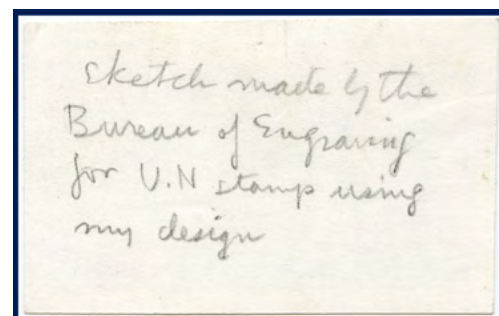 Sketch made by the
Bureau of Engraving
for U.N stamp using
my design